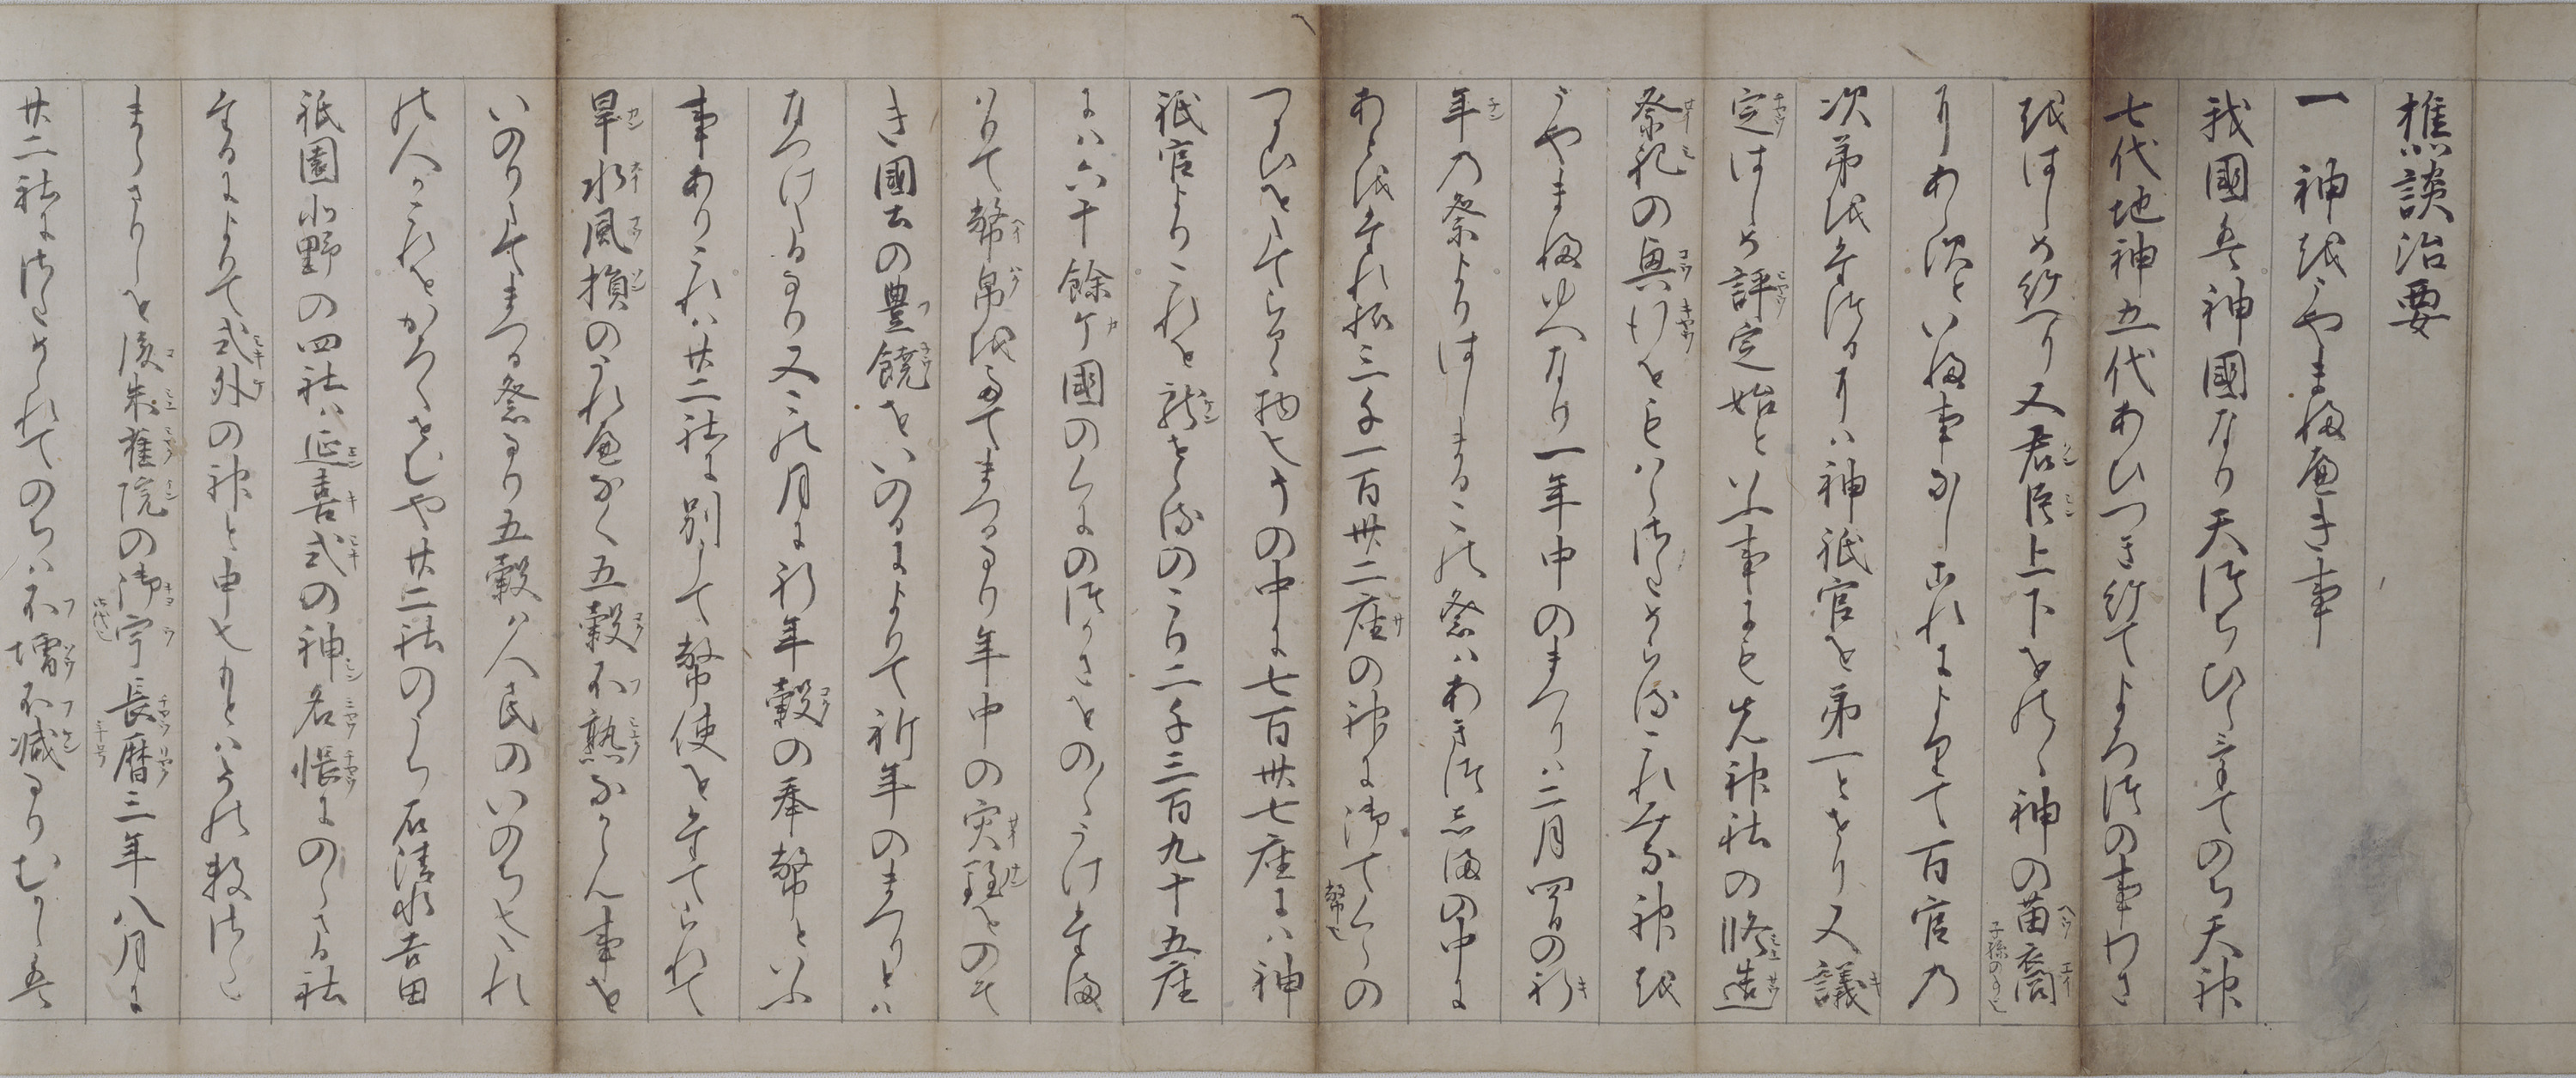 樵談治要
一 神をうやまふへき事
我國は神國なり天つちひらけてのち天神
七代地神五代あひつき給てよろつの事わさ
をはしめ給へり又君臣上下をの〱神の苗裔
にあらすといふ事なしこれによりて百官の
次第をたつるには神祇官を第一とせり又議
定はしめ評定始といふ事にも先神社の修造
祭祀の興行をもはらさたせらるこれみな神を
うやまふゆへなり一年中のまつりは二月四日の祈
年の祭よりはしまるこの祭はあきつしまの中に
あとをたれ給三千一百卅二座の神に御てくらの
つかひをたてらるゝ物也その中に七百卅七座には神
祇官よりこれを献せらるのこり二千三百九十五座
には六十餘ケ國のくにのつかさをの〱うけたま
はりて幣帛をたてまつるなり年中の災難をのそ
き國土の豊饒をいのるによりて祈年のまつりとは
なつけたるなり又この月に祈年穀の奉幣といふ
事ありこれは廿二社に別して幣使をたてられて
旱水風損のうれへなく五穀不熟なからん事を
いのりたてまつる祭なり五穀は人民のいのちたれは
たれの人かこれをかろくせむや廿二社のうち石清水吉田
祇園北野の四社は延喜式の神名帳にのらさる社
たるによりて式外の神と申也もとはその数さたま
らさりしを後朱雀院の御宇長暦三年八月に
廿二社にさためられてのちは不増不減なりむかしは